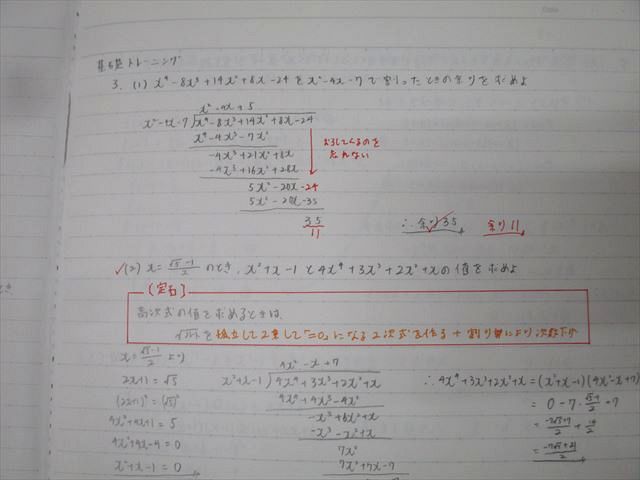 基礎トレーニング
3. (1) x⁴-8x³+14x²+8x-24をx²-4x-7で割ったときの余りを求めよ
x²-4x+5
x²-4x-7)x⁴-8x³+14x²+8x-24
x⁴-4x³-7x²
-4x³+21x²+8x
-4x³+16x²+28x
おろしてくるのを
忘れない
5x²-20x-24
5x²-20x-35
35
11
∴余り35
余り11
✓(2) x=(√5-1)/2 のとき、x²+x-1と4x⁴+3x³+2x²+xの値を求めよ
[定石]
高次式の値を求めるときは、
を孤立して2乗して「=0」になる2次式を作る + 割り算により次数下げ
x=(√5-1)/2 より
2x+1=√5
(2x+1)²=(√5)²
4x²+4x+1=5
4x²+4x-4=0
x²+x-1=0
4x²-x+7
x²+x-1)4x⁴+3x³+2x²+x
4x⁴+4x³-4x²
-x³+6x²+x
-x³-x²+x
7x²
7x²+7x-7
∴4x⁴+3x³+2x²+x=(x²+x-1)(4x²-x+7)